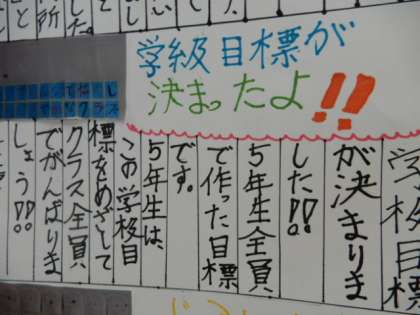 学級目標が
決まったよ!!
学校目標
が決まりま
した!!
5年生全員
で作った目標
です。
5年生は、
この学校目
標をめざして
クラス全員
でがんばりま
しょう!!